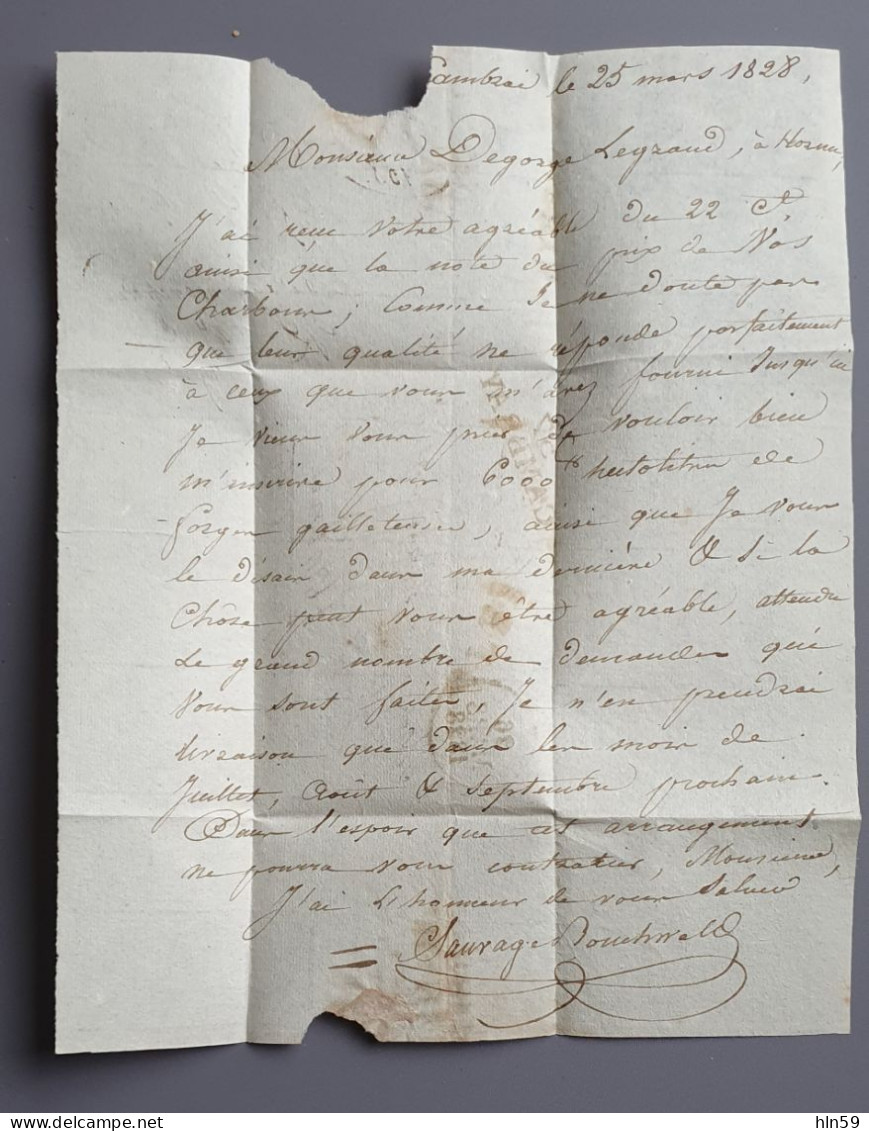 Cambrai le 25 mars 1828,
Monsieur Degorge Legrand, à Hornu,
J'ai reçu Votre agréable du 22 Ct.
ainsi que la note du prix de Vos
Charbons; Comme Je ne doute pas
que leur qualité ne réponde parfaitement
à ceux que vous m'avez fourni Jusqu'ici
Je viens vous prier de vouloir bien
m'inscrire pour 6000 hectolitres de
forges gailleteuses, ainsi que Je vous
le désair dans ma dernière & Si la
Chôse peut vous être agréable, attendu
Le grand nombre de demandes qué
Vous sont faites, Je n'en prendrai
livraison que dans les mois de
Juillet, Août & Septembre prochain.
Dans l'espoir que cet arrangement
ne pourra vous contrarier, Monsieur,
J'ai L'honneur de vous Saluer
Sauvage
delcampe.net
hln59